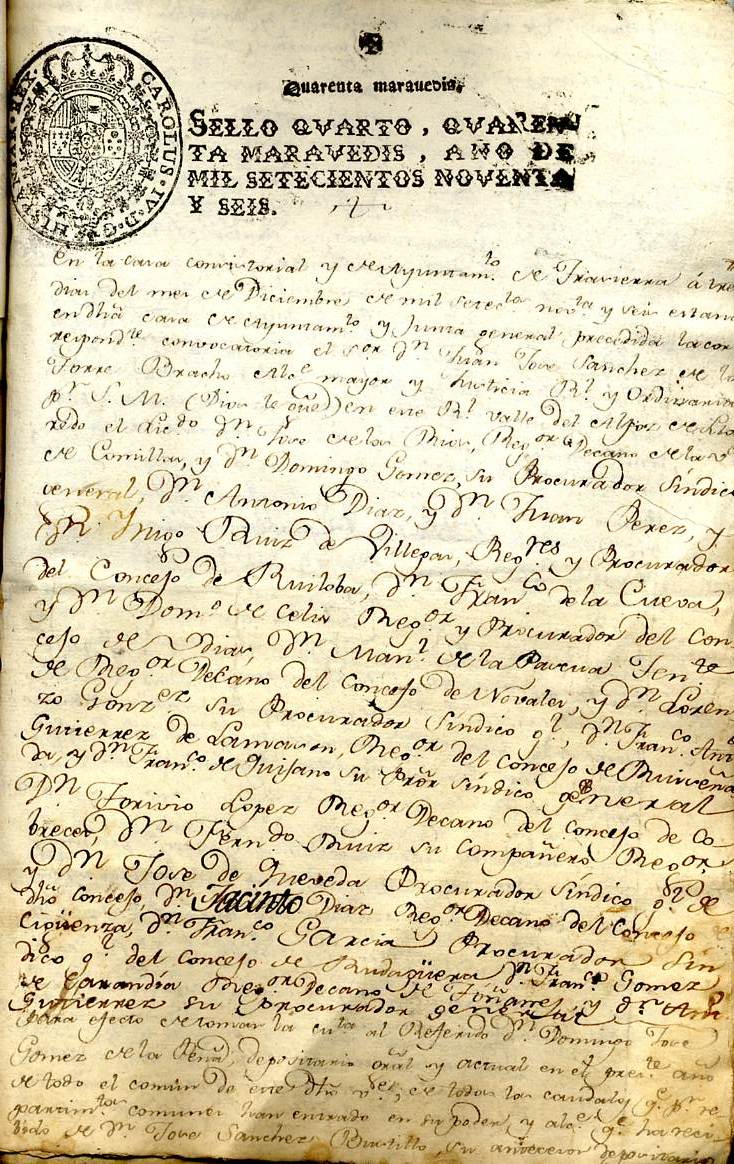 CAROLUS·IV·D·G·HISPANIAR·REX·
Quarenta maravedis.
SELLO QVARTO, QVAREN
TA MARAVEDIS, AÑO DE
MIL SETECIENTOS NOVENTA
Y SEIS.
En la casa consistorial y de Ayuntamto de Travierra á tre
dias del mes de Diciembre de mil setecta novta y seis estan
en dha casa de Ayuntamto y Junta general precedida la cor
respondte convocatoria el Sor Dn Juan Jose Sanchez de la
Torre Bracho Alce mayor y Justicia Rl y Ordinaria
pr S. M. (Dios le gue) en este Rl Valle del Alfoz de Llo
redo el Licdo Dn Jose de la Riva, Regor Decano de la Va
de Comillas, y Dn Domingo Gomez, su Procurador Sindico
general, Dn Antonio Diaz, y Dn Juan Perez, y
Dn Yñigo Ruiz de Villegas, Regres y Procurador
del Concejo de Ruiloba, Dn Franco de la Cueva,
y Dn Domo de Celis Regor y Procurador del Con
cejo de Udias, Dn Manl de la Pascua Tente
de Regor Decano del Concejo de Novales, y Dn Loren
zo Gonzez su Procurador Sindico gl, Dn Franco Anto
Gutierrez de Lamason, Regor del Concejo de Ruiseña
da, y Dn Franco de Quijano su Pror Sindico general
Dn Torivio Lopez Regor Decano del Concejo de Co
breces, Dn Ferndo Ruiz su Compañero Regor,
y Dn Jose de Queveda Procurador Sindico gl de
dho Concejo, Dn Jacinto Diaz Regor Decano del Concejo
Cigüenza, Dn Franco Garcia Procurador Sin
dico gl del Concejo de Rudagüera Dn Franco Gomez
de Carandia Regor Decano de Toñanes, y Dn Anto
Gutierrez su Procurador general
para efecto de tomar la cta al Referido Dn Domingo Jose
Gomez de la Peña, depositario gral y actual en el prete año
de todo el comun de este dho de todos los caudales qe pr re
partimtos comunes han entrado en su poder, y alce qe ha reci
bido de Dn Jose Sanchez Bustillo, su antecesor depositario